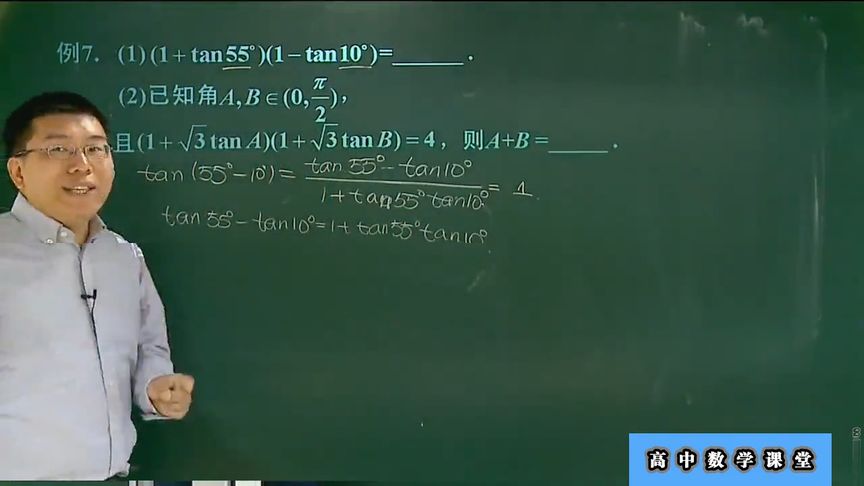 例7. (1) (1+tan55°)(1-tan10°)=______.
(2)已知角A,B∈(0,π/2),
且(1+√3tanA)(1+√3tanB)=4，则A+B=_____.
tan(55°-10°)=(tan55°-tan10°)/(1+tan55°tan10°)=1.
tan55°-tan10°=1+tan55°tan10°
高中数学课堂